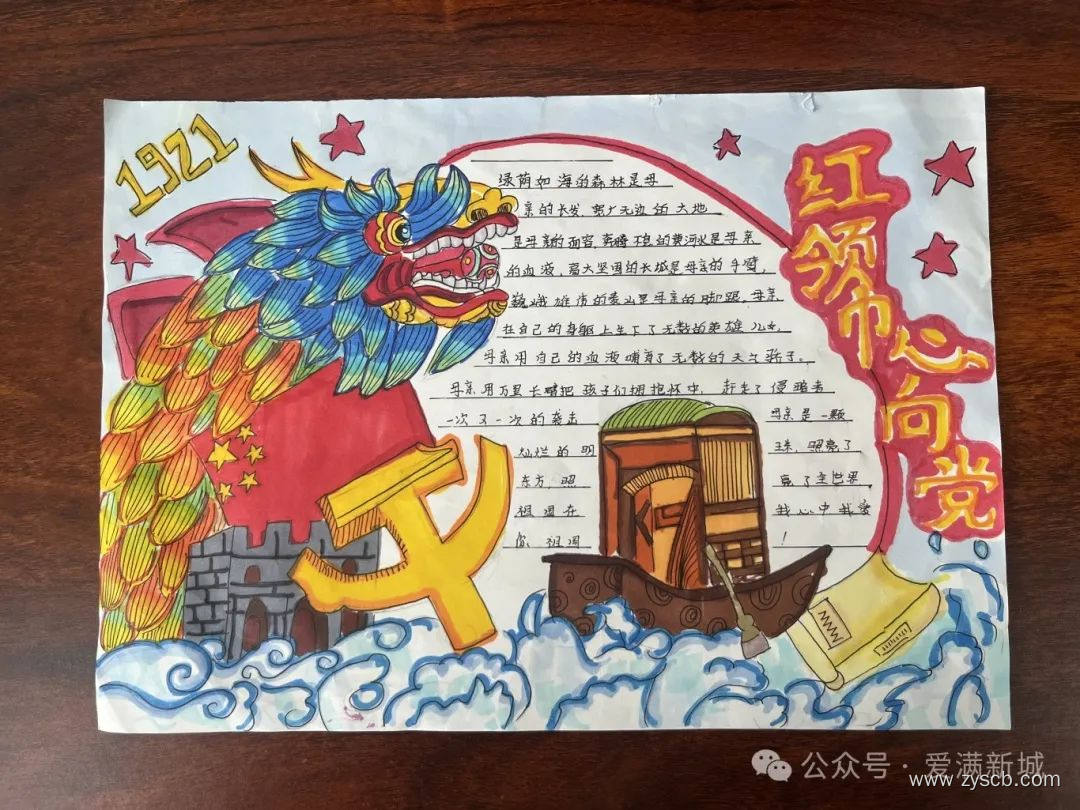 1921
红领巾心向党
绿荫如海的森林是母
亲的长发、宽广无边的大地
是母亲的面容,奔腾不息的黄河水是母亲
的血液,高大坚固的长城是母亲的手臂,
巍峨雄伟的泰山是母亲的脚跟。母亲
在自己的身躯上生下了无数的英雄儿女,
母亲用自己的血液哺育了无数的天之骄子,
母亲用万里长臂把孩子们拥抱怀中,赶走了侵略者
一次又一次的袭击 母亲是一颗
灿烂的明 珠,照亮了
东方,照 亮了全世界,
祖国在 我心中我爱
你,祖国 !
公众号·爱满新城
www.zyscb.com